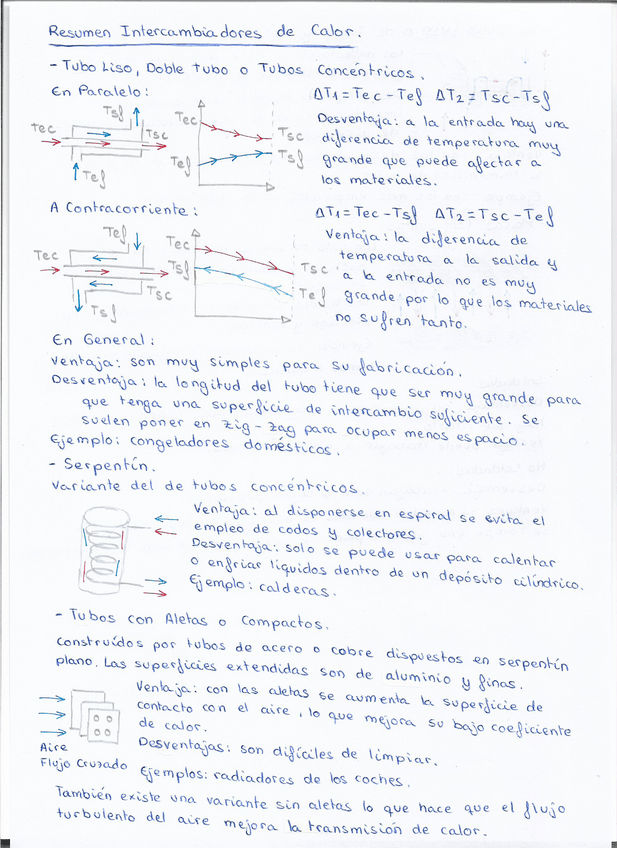 Resumen Intercambiadores de Calor.
- Tubo Liso, Doble tubo o Tubos Concéntricos.
En Paralelo:
ΔT1 = Tec - Tef ΔT2 = Tsc - Tsf
Tsf
Tec
Tsc
Tef
Tec
Tef
Tsc
Tsf
Desventaja: a la entrada hay una
diferencia de temperatura muy
grande que puede afectar a
los materiales.
A Contracorriente:
ΔT1 = Tec - Tsf ΔT2 = Tsc - Tef
Tef
Tec
Tsc
Tsf
Tec
Tsf
Tsc
Tef
Ventaja: la diferencia de
temperatura a la salida y
a la entrada no es muy
grande por lo que los materiales
no sufren tanto.
En General:
Ventaja: son muy simples para su fabricación.
Desventaja: la longitud del tubo tiene que ser muy grande para
que tenga una superficie de intercambio suficiente. Se
suelen poner en zig-zag para ocupar menos espacio.
Ejemplo: congeladores domésticos.
- Serpentín.
Variante del de tubos concéntricos.
Ventaja: al disponerse en espiral se evita el
empleo de codos y colectores.
Desventaja: solo se puede usar para calentar
o enfriar líquidos dentro de un depósito cilíndrico.
Ejemplo: calderas.
- Tubos con Aletas o Compactos.
Construídos por tubos de acero o cobre dispuestos en serpentín
plano. Las superficies extendidas son de aluminio y finas.
Ventaja: con las aletas se aumenta la superficie de
contacto con el aire, lo que mejora su bajo coeficiente
de calor.
Desventajas: son difíciles de limpiar.
Aire
Flujo Cruzado
Ejemplos: radiadores de los coches.
También existe una variante sin aletas lo que hace que el flujo
turbulento del aire mejora la transmisión de calor.